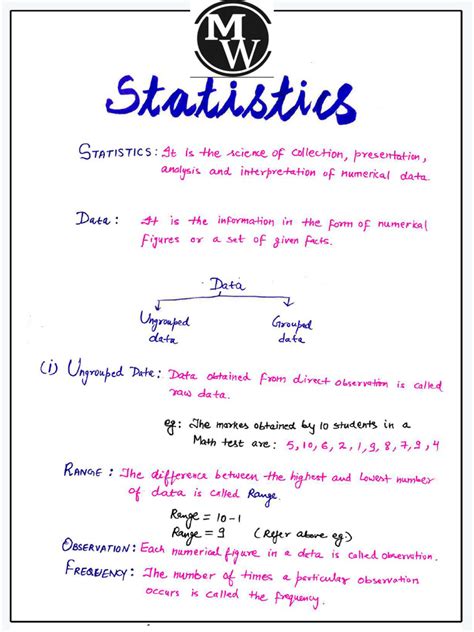 MW
Statistics
STATISTICS: It is the science of collection, presentation,
analysis and interpretation of numerical data
Data: It is the information in the form of numerical
figures or a set of given facts.
Data
Ungrouped data
Grouped data
(i) Ungrouped Date: Data obtained from direct observation is called
raw data.
eg: The markes obtained by 10 students in a
Math test are: 5, 10, 6, 2, 1, 9, 8, 7, 9, 4
RANGE: The difference between the highest and lowest number
of data is called Range.
Range = 10-1
Range = 9 (Refer above eg.)
OBSERVATION: Each numerical figure in a data is called observation.
FREQUENCY: The number of times a particular observation
occurs is called the frequency.